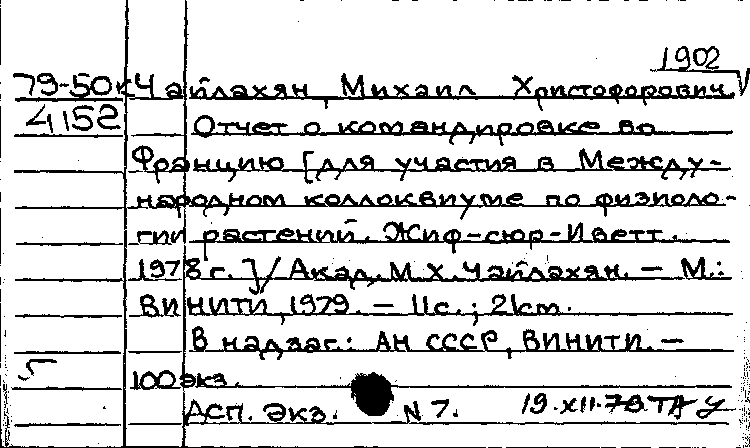 1902
79-50к Чайлахян, Михаил Христофорович
4152 Отчет о командировке во
Францию [для участия в Между-
народном коллоквиуме по физиоло-
гии растений. Жиф-сюр-Иветт.
1978 г.]/ Акад. М. Х. Чайлахян. — М.:
ВИНИТИ, 1979. — 11 с.; 21 cm.
В надзаг.: АН СССР, ВИНИТИ. —
5 100 экз.
АСП. Экз. N 7. 19.XII.79.